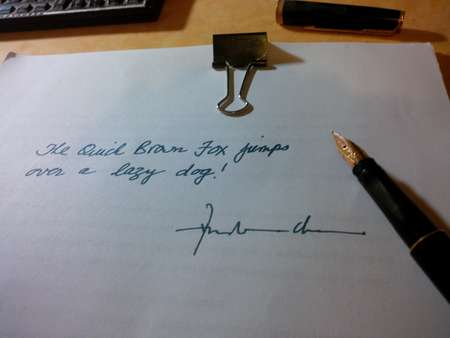 The Quick Brown Fox jumps
over a lazy dog!